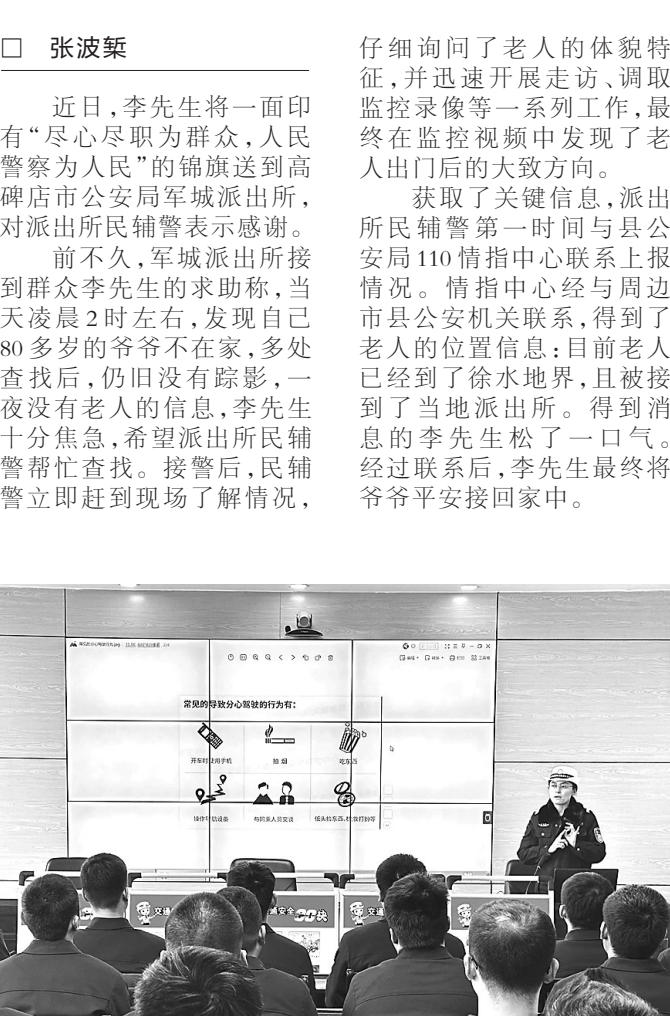 □ 张波蜇
近日，李先生将一面印
有“尽心尽职为群众，人民
警察为人民”的锦旗送到高
碑店市公安局军城派出所，
对派出所民辅警表示感谢。
前不久，军城派出所接
到群众李先生的求助称，当
天凌晨2时左右，发现自己
80多岁的爷爷不在家，多处
查找后，仍旧没有踪影，一
夜没有老人的信息，李先生
十分焦急，希望派出所民辅
警帮忙查找。接警后，民辅
警立即赶到现场了解情况，
仔细询问了老人的体貌特
征，并迅速开展走访、调取
监控录像等一系列工作，最
终在监控视频中发现了老
人出门后的大致方向。
获取了关键信息，派出
所民辅警第一时间与县公
安局110情指中心联系上报
情况。情指中心经与周边
市县公安机关联系，得到了
老人的位置信息：目前老人
已经到了徐水地界，且被接
到了当地派出所。得到消
息的李先生松了一口气。
经过联系后，李先生最终将
爷爷平安接回家中。
常见的导致分心驾驶的行为有：
开车时使用手机
抽烟
吃东西
操作导航设备
与同乘人员交谈
交通
安全
交通